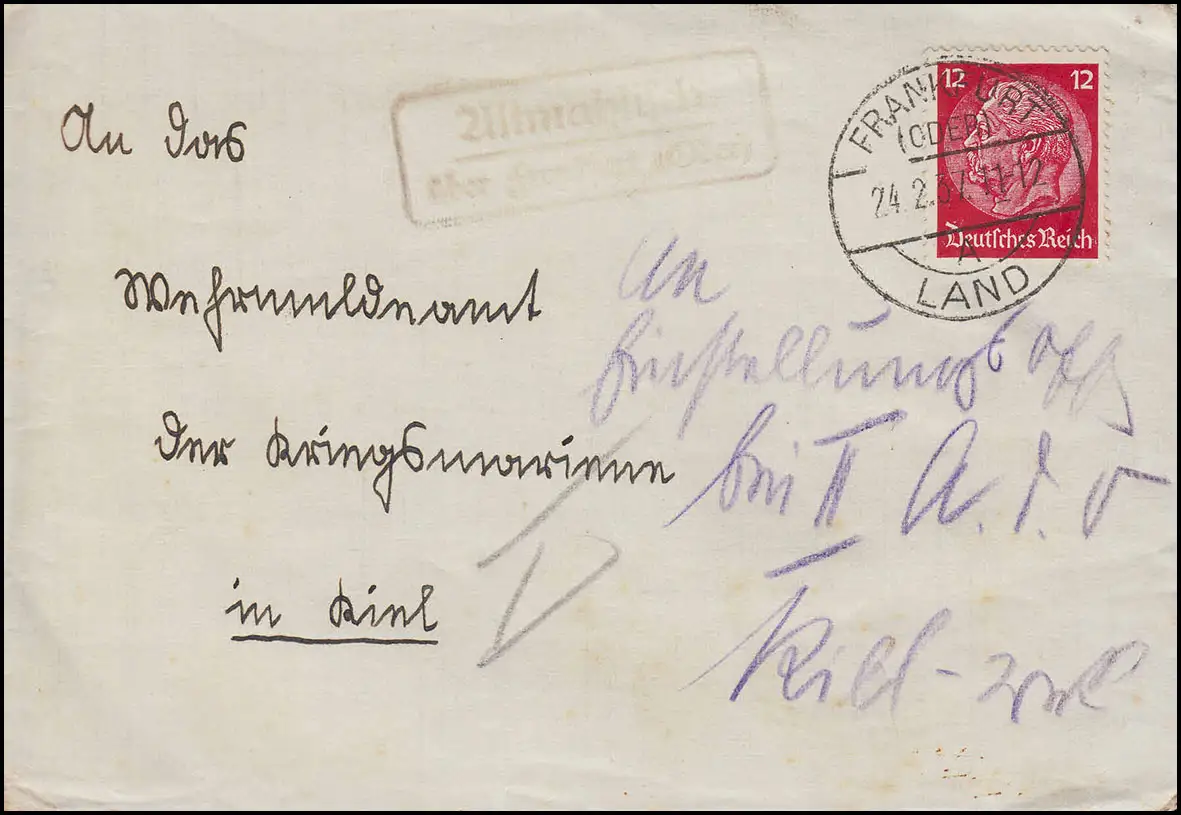 An das
Wehrmeldeamt
der Kriegsmariene
in Kiel
über Frankfurt (Oder)
12 12
Deutsches Reich
FRANKFURT
(ODER)
24.2.37.11-12
A
LAND
An
Einstellungs
bei II A. d. O
Kiel-